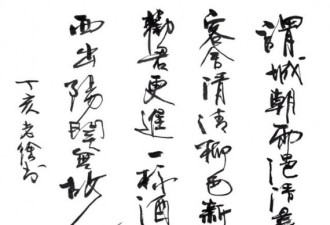 渭城朝雨浥清
客舍清清柳色新
勸君更進一杯酒
西出陽關無故
丁亥